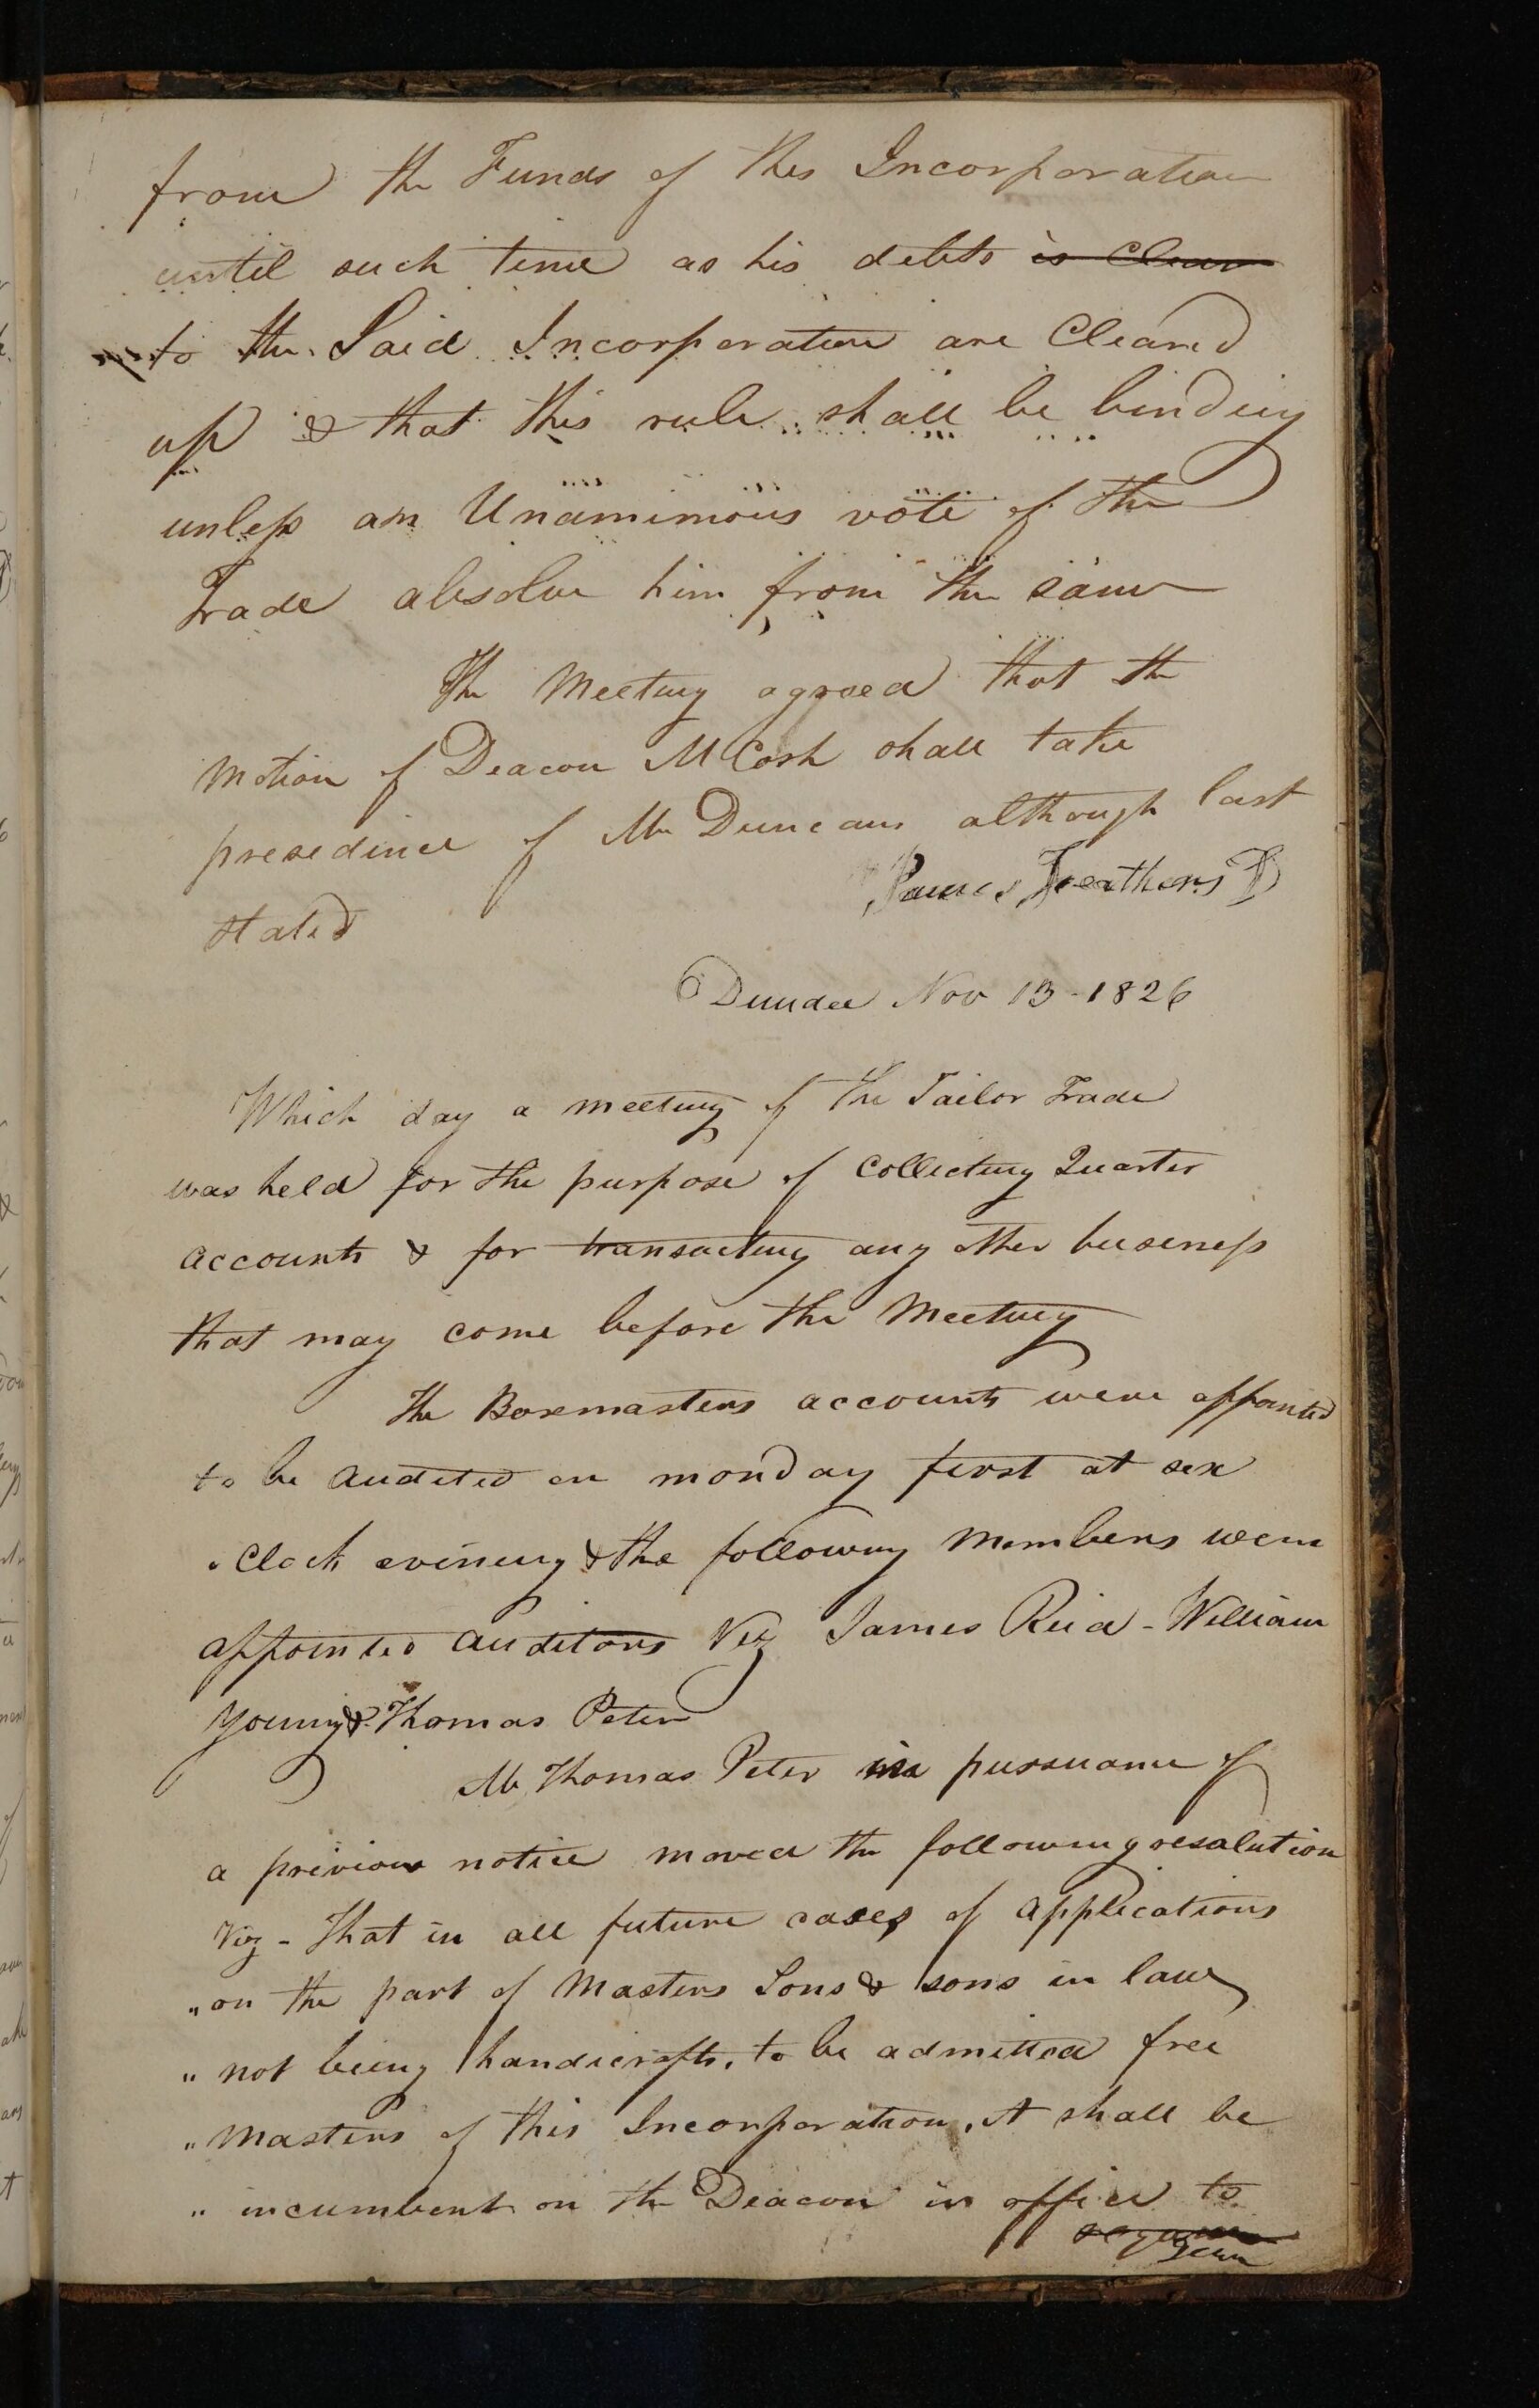 from the Funds of this Incorporation
until such time as his debts is Clear
to the Said Incorporation are Cleard
up & that this rule shall be binding
unless an Unanimous vote of the
Trade absolve him from the same
The Meeting agreed that the
Motion of Deacon McCosh shall take
presedence of Mr Duncans although last
stated
James Feathers D
Dundee Nov 13 - 1826
Which day a meeting of the Tailor Trade
was held for the purpose of Collecting Quarter
accounts & for transacting any other business
that may come before the Meeting
The Boxmasters accounts were appointed
to be audited on monday first at six
oClock evening & the following Members were
appointed auditors Viz James Reid - William
Young & Thomas Peter
Mr Thomas Peter in pursuance of
a privious notice moved the following resolution
Viz - That in all future cases of applications
"on the part of Masters Sons & sons in law
"not being handicrafts, to be admitted free
"Masters of this Incorporation, it shall be
"incumbent on the Deacon in office to